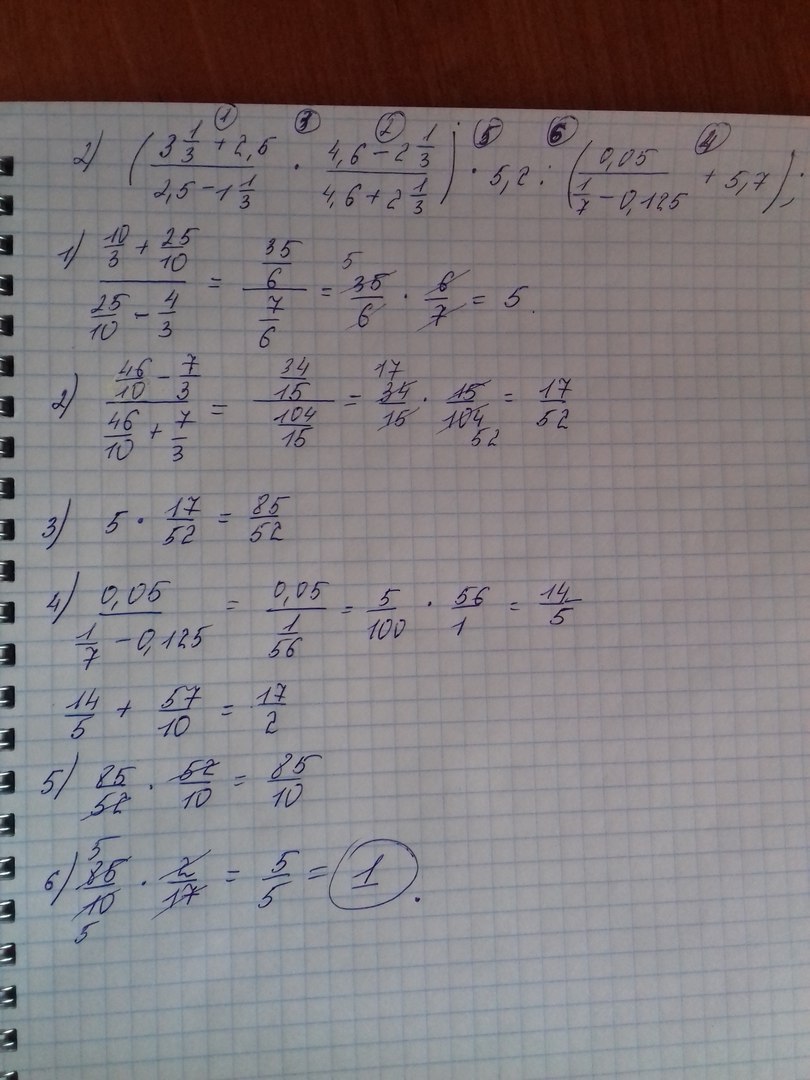 ① ③ ② ⑤ ⑥ ④
2) ((3 1/3 + 2,5)/(2,5 - 1 1/3) · (4,6 - 2 1/3)/(4,6 + 2 1/3)) · 5,2 : (0,05/(1/7 - 0,125) + 5,7);
1) (10/3 + 25/10)/(25/10 - 4/3) = (35/6)/(7/6) = 5 35/6 · 6/7 = 5.
2) (46/10 - 7/3)/(46/10 + 7/3) = (34/15)/(104/15) = 17 34/15 · 15/104 52 = 17/52
3) 5 · 17/52 = 85/52
4) 0,05/(1/7 - 0,125) = 0,05/(1/56) = 5/100 · 56/1 = 14/5
14/5 + 57/10 = 17/2
5) 85/52 · 52/10 = 85/10
6) 5 85/10 5 · 2/17 = 5/5 = 1.